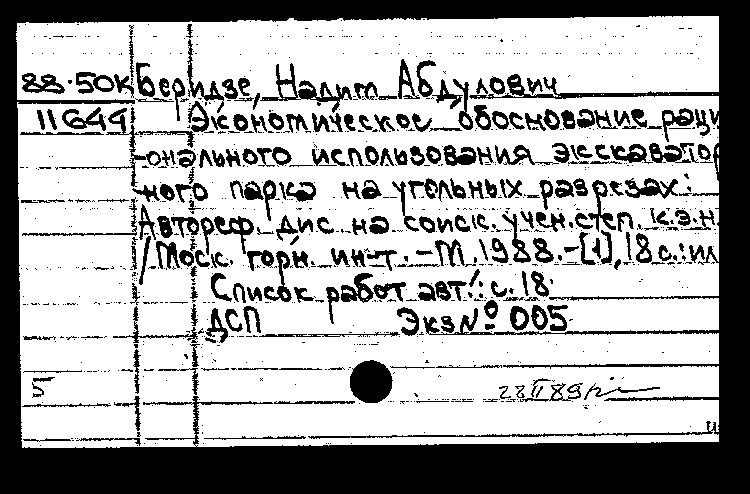 88-50К Беридзе, Надим Абдулович
11644 Экономическое обоснование раци
-онального использования экскаватор
-ного парка на угольных разрезах:
Автореф. дис. на соиск. учен. степ. к.э.н.
/Моск. горн. ин-т. -М. 1988.-[1], 18 с.: ил
Список работ авт.: с. 18.
ДСП Экз № 005
5 28 II 89